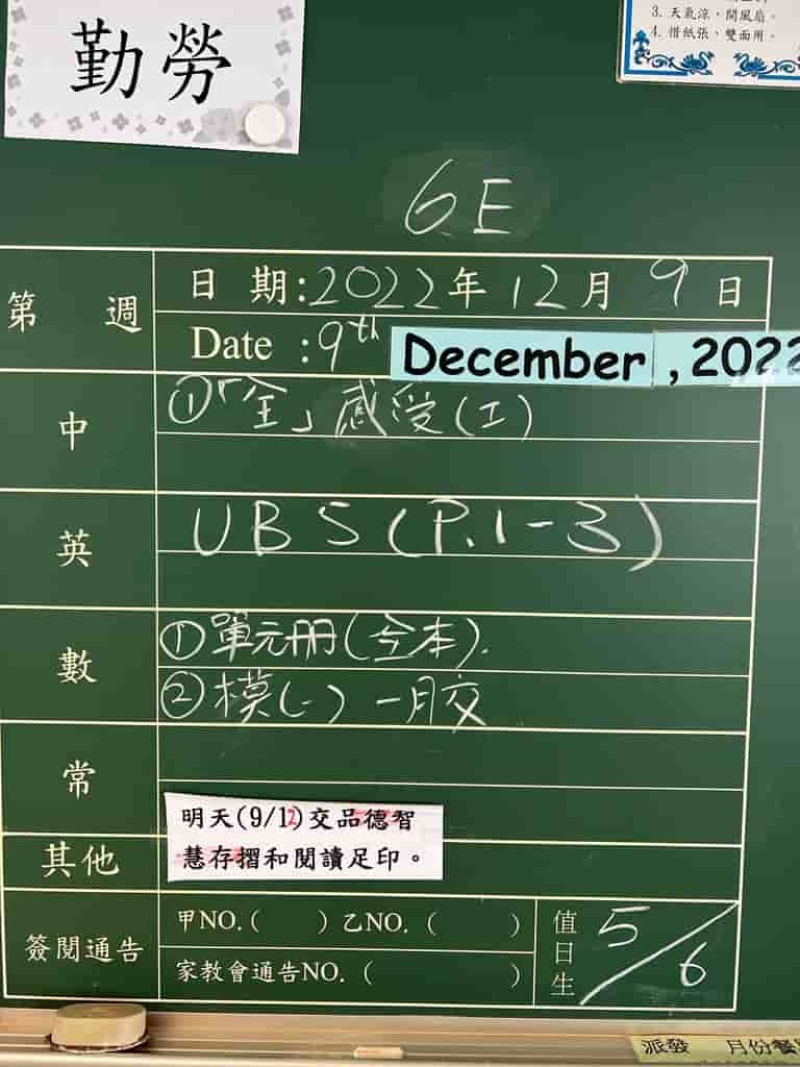 勤勞
3. 天氣涼，開風扇。
4. 惜紙張，雙面用。
6E
第 週
日 期:2022年12月9日
Date :9th December , 2022
中
①「全」感受(工)
英
UB5(P.1-3)
數
①單元册(全本).
②模(一) 一月交
常
明天(9/12)交品德智
慧存摺和閱讀足印。
其他
簽閱通告
甲NO.( ) 乙NO. ( )
家教會通告NO. ( )
值日生 5/6
派發 月份餐